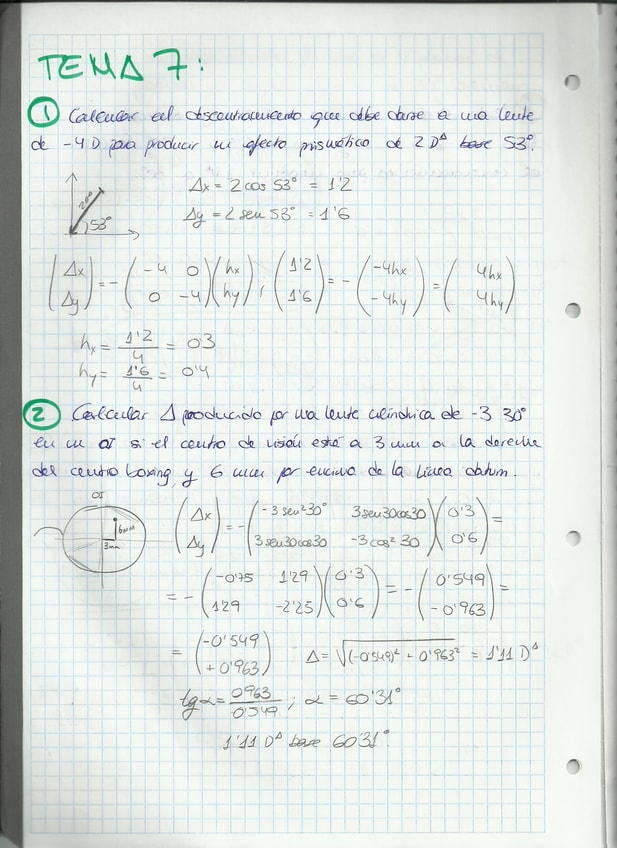 TEMA 7:
① Calcular el descentramiento que debe darse a una lente
de -4 D para producir un efecto prismático de 2 D^Δ base 53°.
2 D^Δ
53°
Δx = 2 cos 53° = 1'2
Δy = 2 sen 53° = 1'6
(Δx Δy) = -(-4 0 0 -4)(hx hy), (1'2 1'6) = -(-4hx -4hy) = (4hx 4hy)
hx = 1'2/4 = 0'3
hy = 1'6/4 = 0'4
② Calcular Δ producido por una lente cilíndrica de -3 30°
en un OI si el centro de visión está a 3 mm a la derecha
del centro boxing, y 6 mm por encima de la línea datum.
OI
6mm
3mm
(Δx Δy) = -(-3 sen²30° 3sen30cos30 3sen30cos30 -3cos²30)(0'3 0'6) =
= -(-0'75 1'29 1'29 -2'25)(0'3 0'6) = -(0'549 -0'963) =
= (-0'549 +0'963) Δ = √(-0'549)² + 0'963² = 1'11 D^Δ
tg α = 0'963/0'549 ; α = 60'31°
1'11 D^Δ base 60'31°.